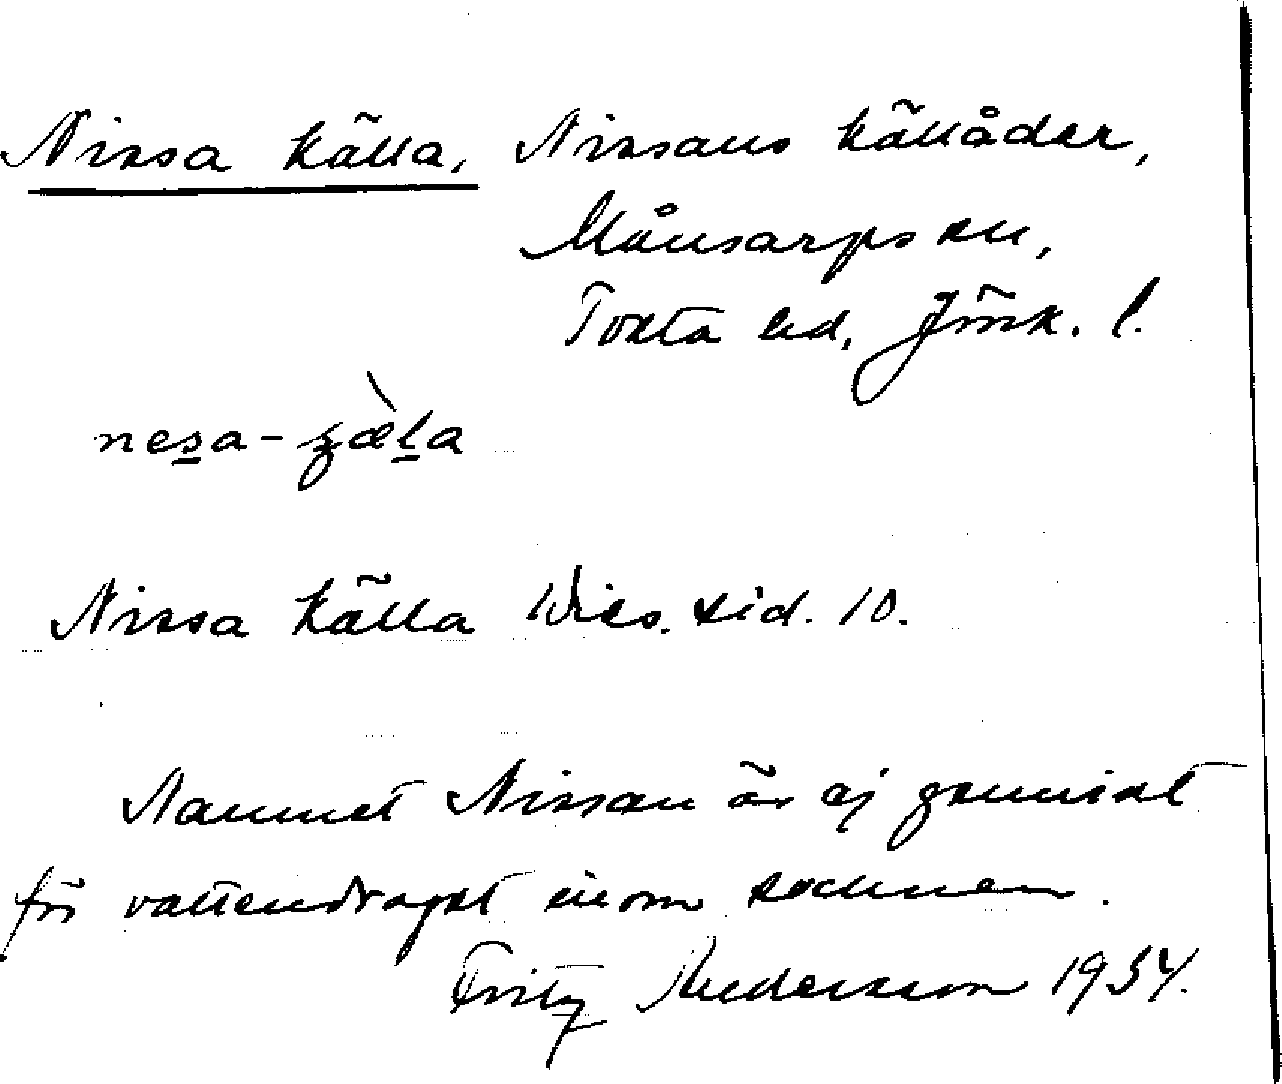 Nissa källa, Nissans källåder,
Månsarps sn,
Tveta hd, Jönk. l.
nesa-
Nissa källa Wies. sid. 10.
Namnet Nissan är ej genuint
för vattendraget inom socknen.
Fritz Andersson 1934.